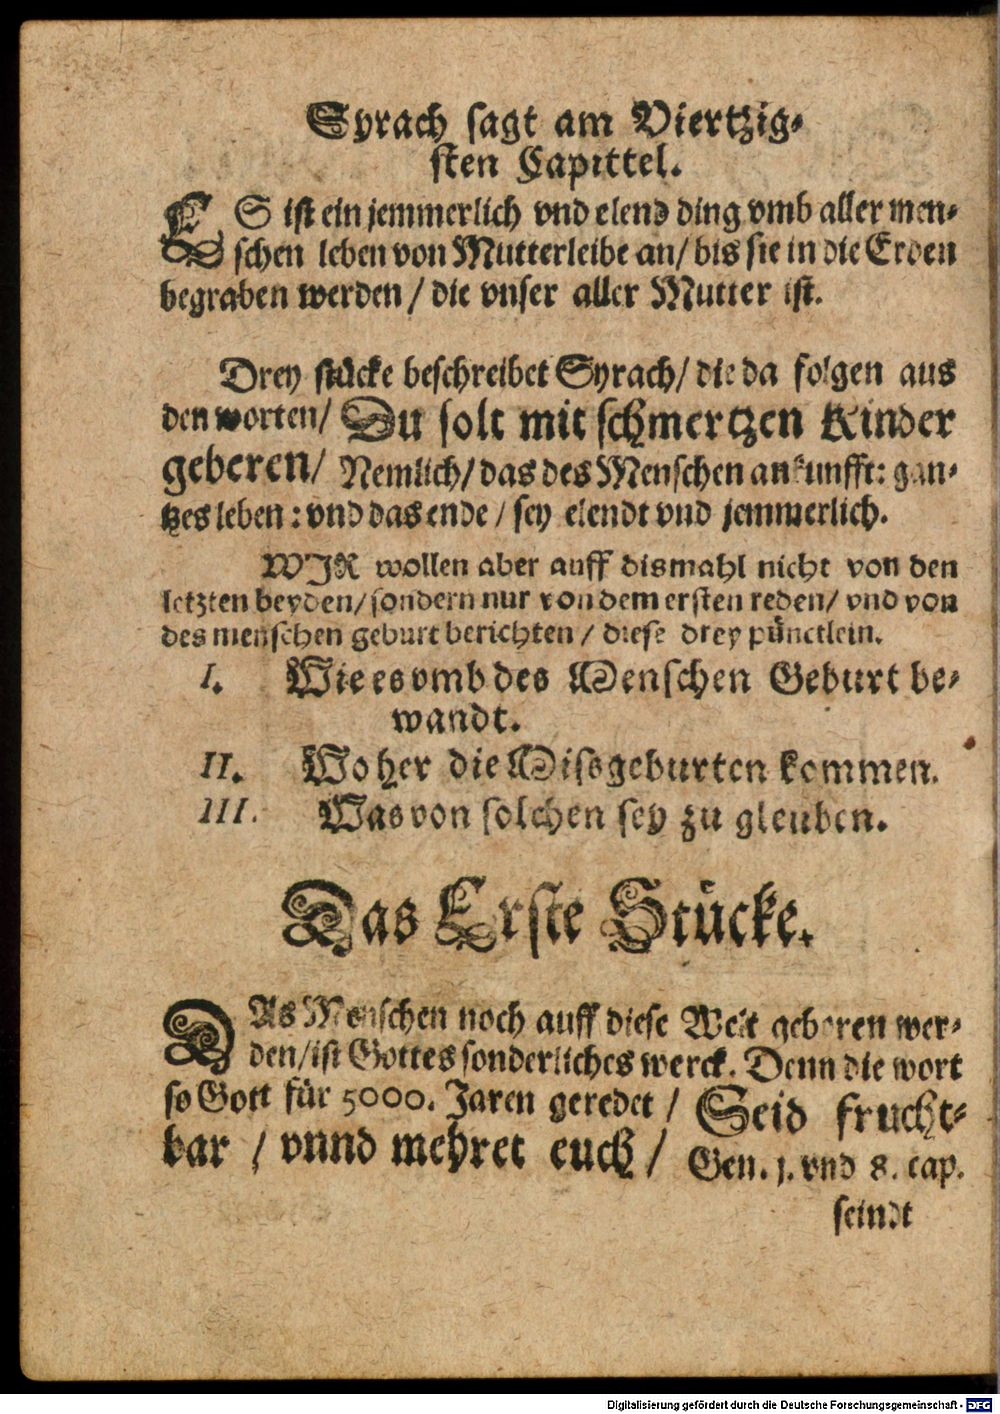 Syrach sagt am Viertzig-
sten Capittel.
ES ist ein jemmerlich vnd elend ding vmb aller men-
schen leben von Mutterleibe an/ bis sie in die Erden
begraben werden / die vnser aller Mutter ist.
Drey stücke beschreibet Syrach/ die da folgen aus
den worten/ Du solt mit schmertzen Kinder
geberen/ Nemlich/ das des Menschen ankunfft: gan-
tzes leben: vnd das ende / sey elendt vnd jemmerlich.
WIR wollen aber auff dismahl nicht von den
letzten beyden/ sondern nur von dem ersten reden/ vnd von
des menschen geburt berichten / diese drey pünctlein.
I. Wie es vmb des Menschen Geburt be-
wandt.
II. Woher die Missgeburten kommen.
III. Was von solchen sey zu gleuben.
Das Erste Stücke.
DAs Menschen noch auff diese Welt geboren wer-
den/ ist Gottes sonderliches werck. Denn die wort
so Gott für 5000. Jaren geredet / Seid frucht-
bar / vnnd mehret euch / Gen. 1. vnd 8. cap.
seindt
Digitalisierung gefördert durch die Deutsche Forschungsgemeinschaft - DFG